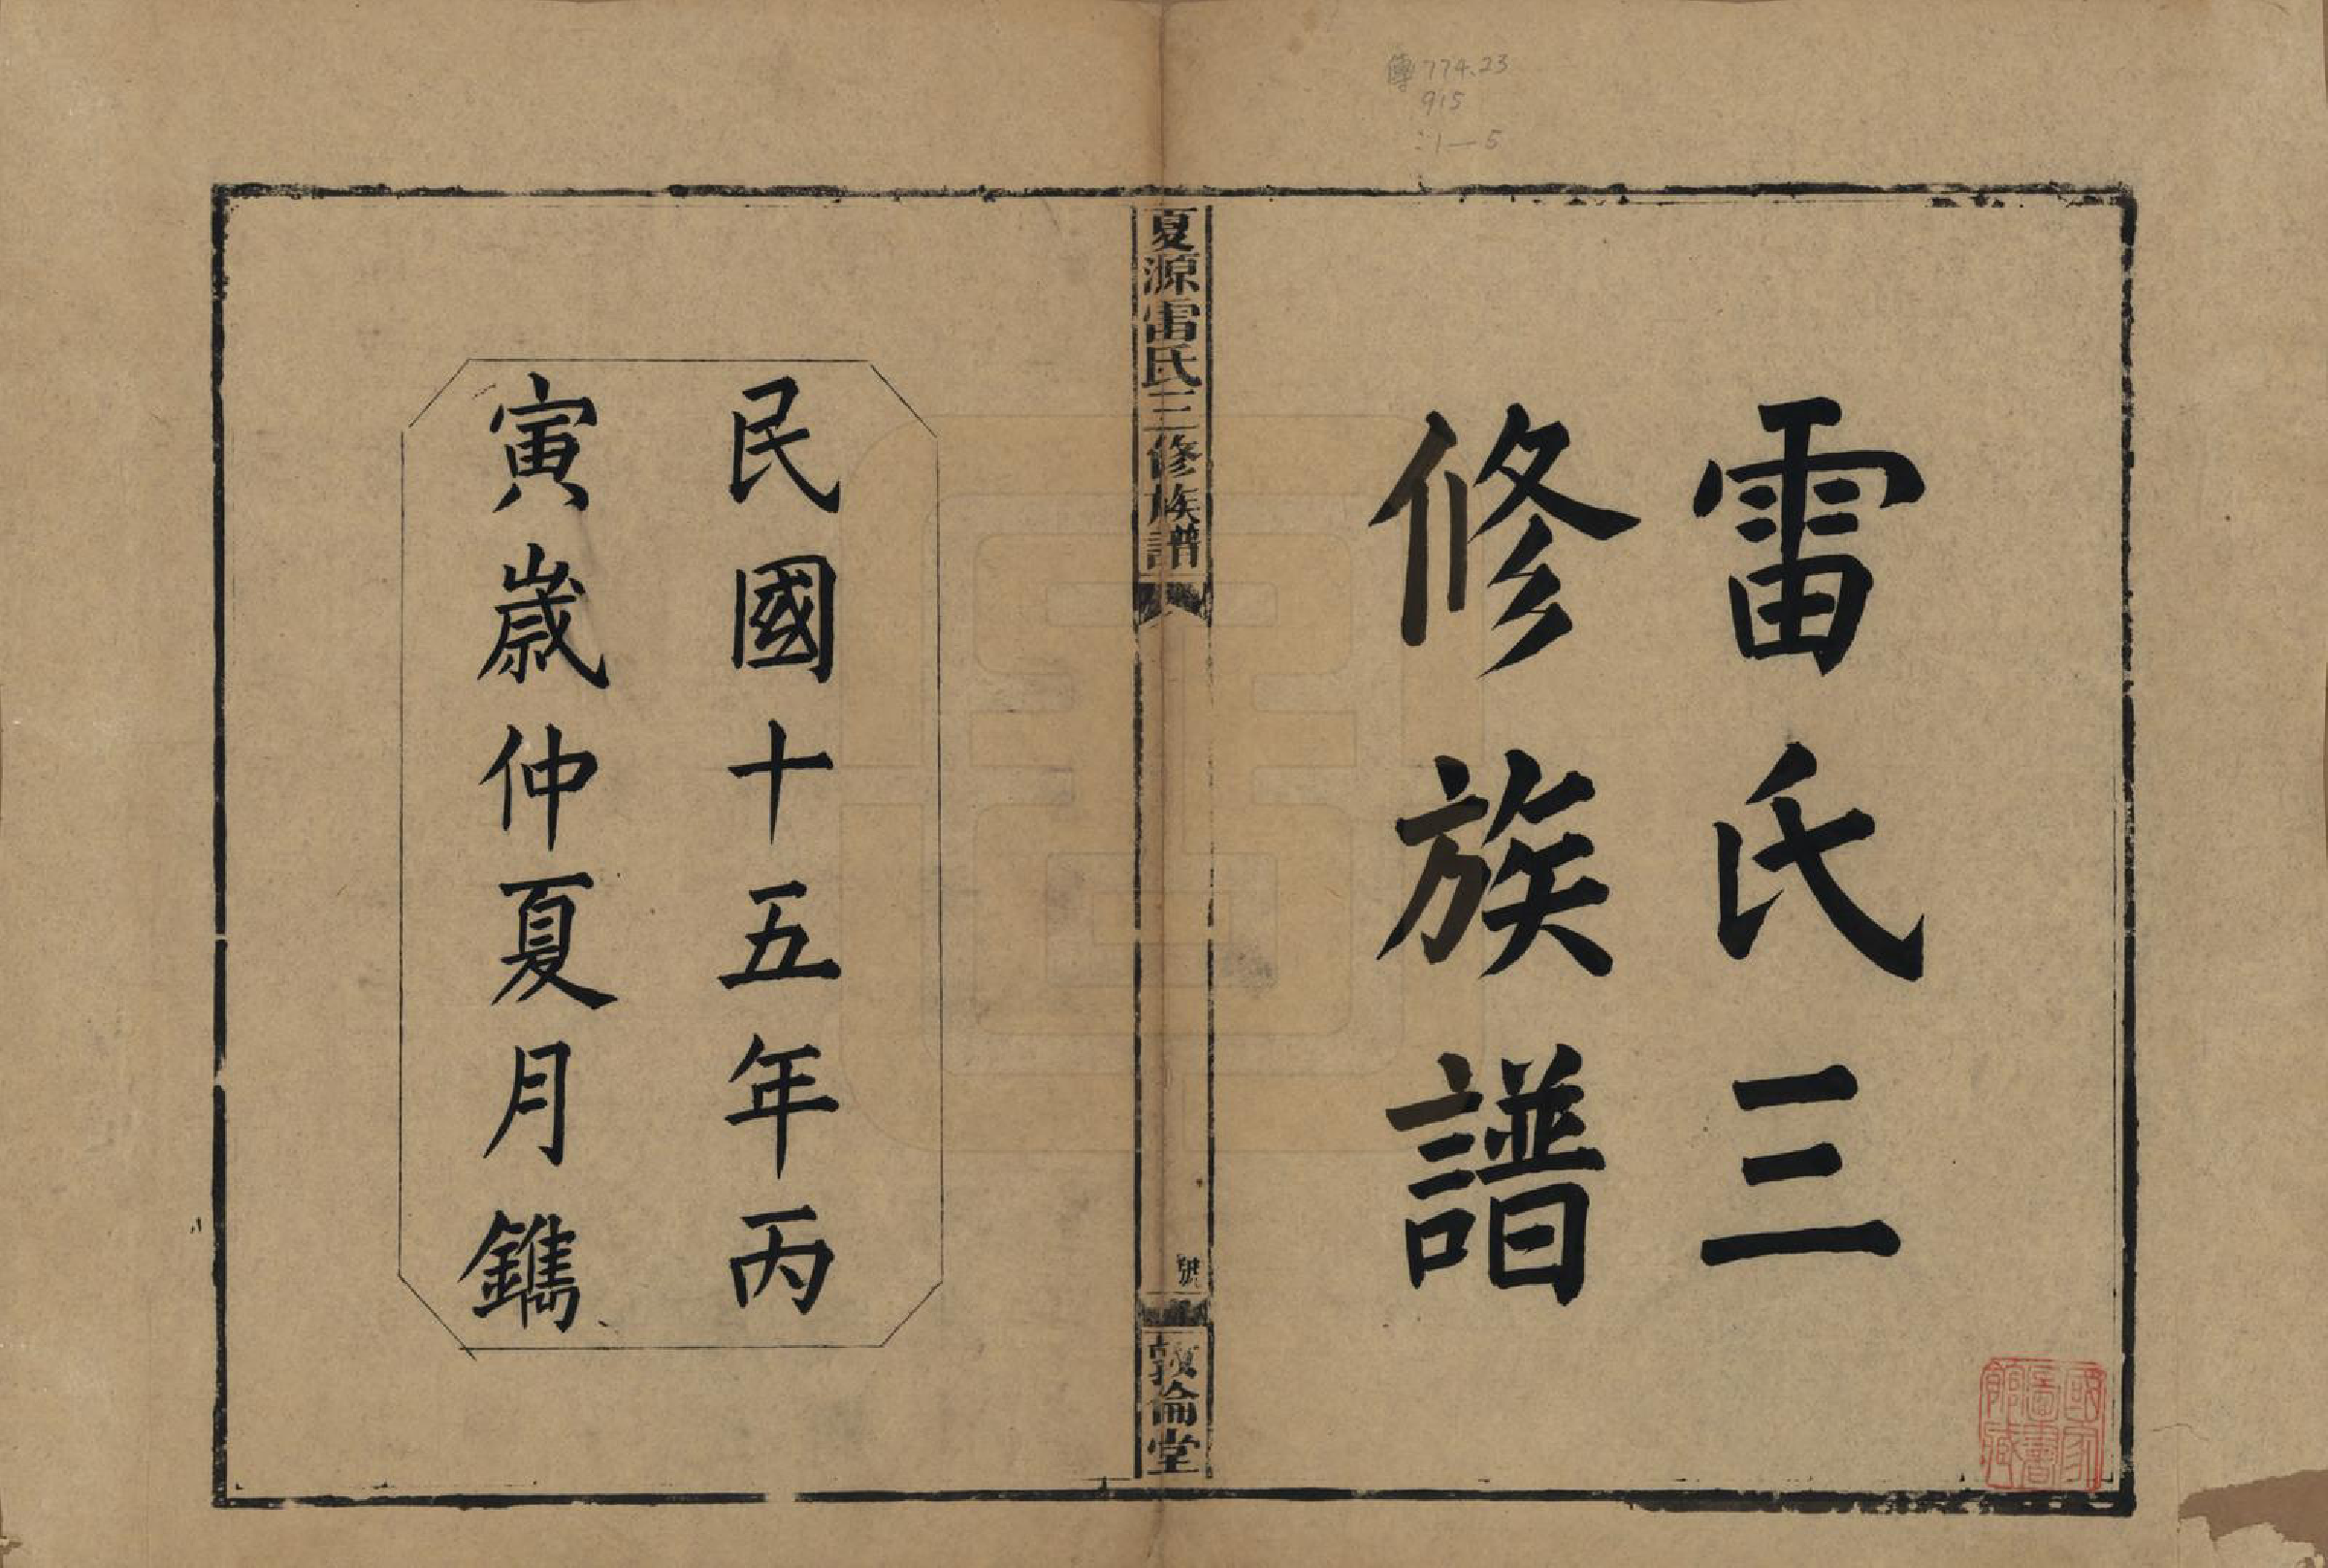 傳774.23
915
:1—5
雷氏三
修族譜
夏源雷氏三修族譜
號
敦倫堂
民國十五年丙
寅歲仲夏月鐫
國家
圖書
館藏